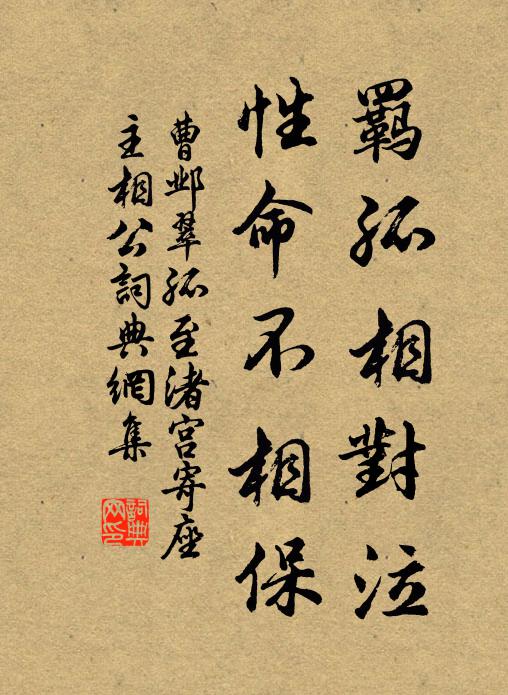 羈孤相對泣
性命不相保
曹邺翠孤至渚宫寄座
主相公詞典網集
詞典网印